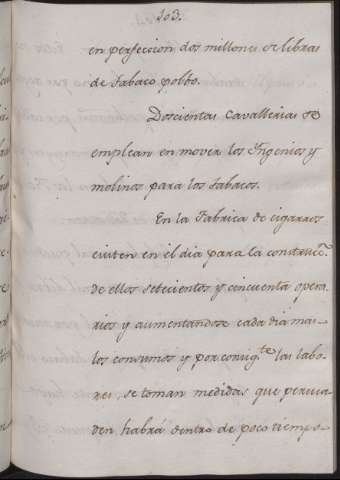 103.
en perfeccion dos millones de libras
de Tabaco polvo.
Doscientas Cavallerias se
emplean en mover los Ingenios y
molinos para los tabacos.
En la Fabrica de cigarros
exîsten en el dia para la construcn.
de ellos setecientos y cincuenta opera
rios y aumentandose cada dia mas
los consumos y por consigte. las labo-
res, se toman medidas que persua-
den habrá dentro de poco tiempo